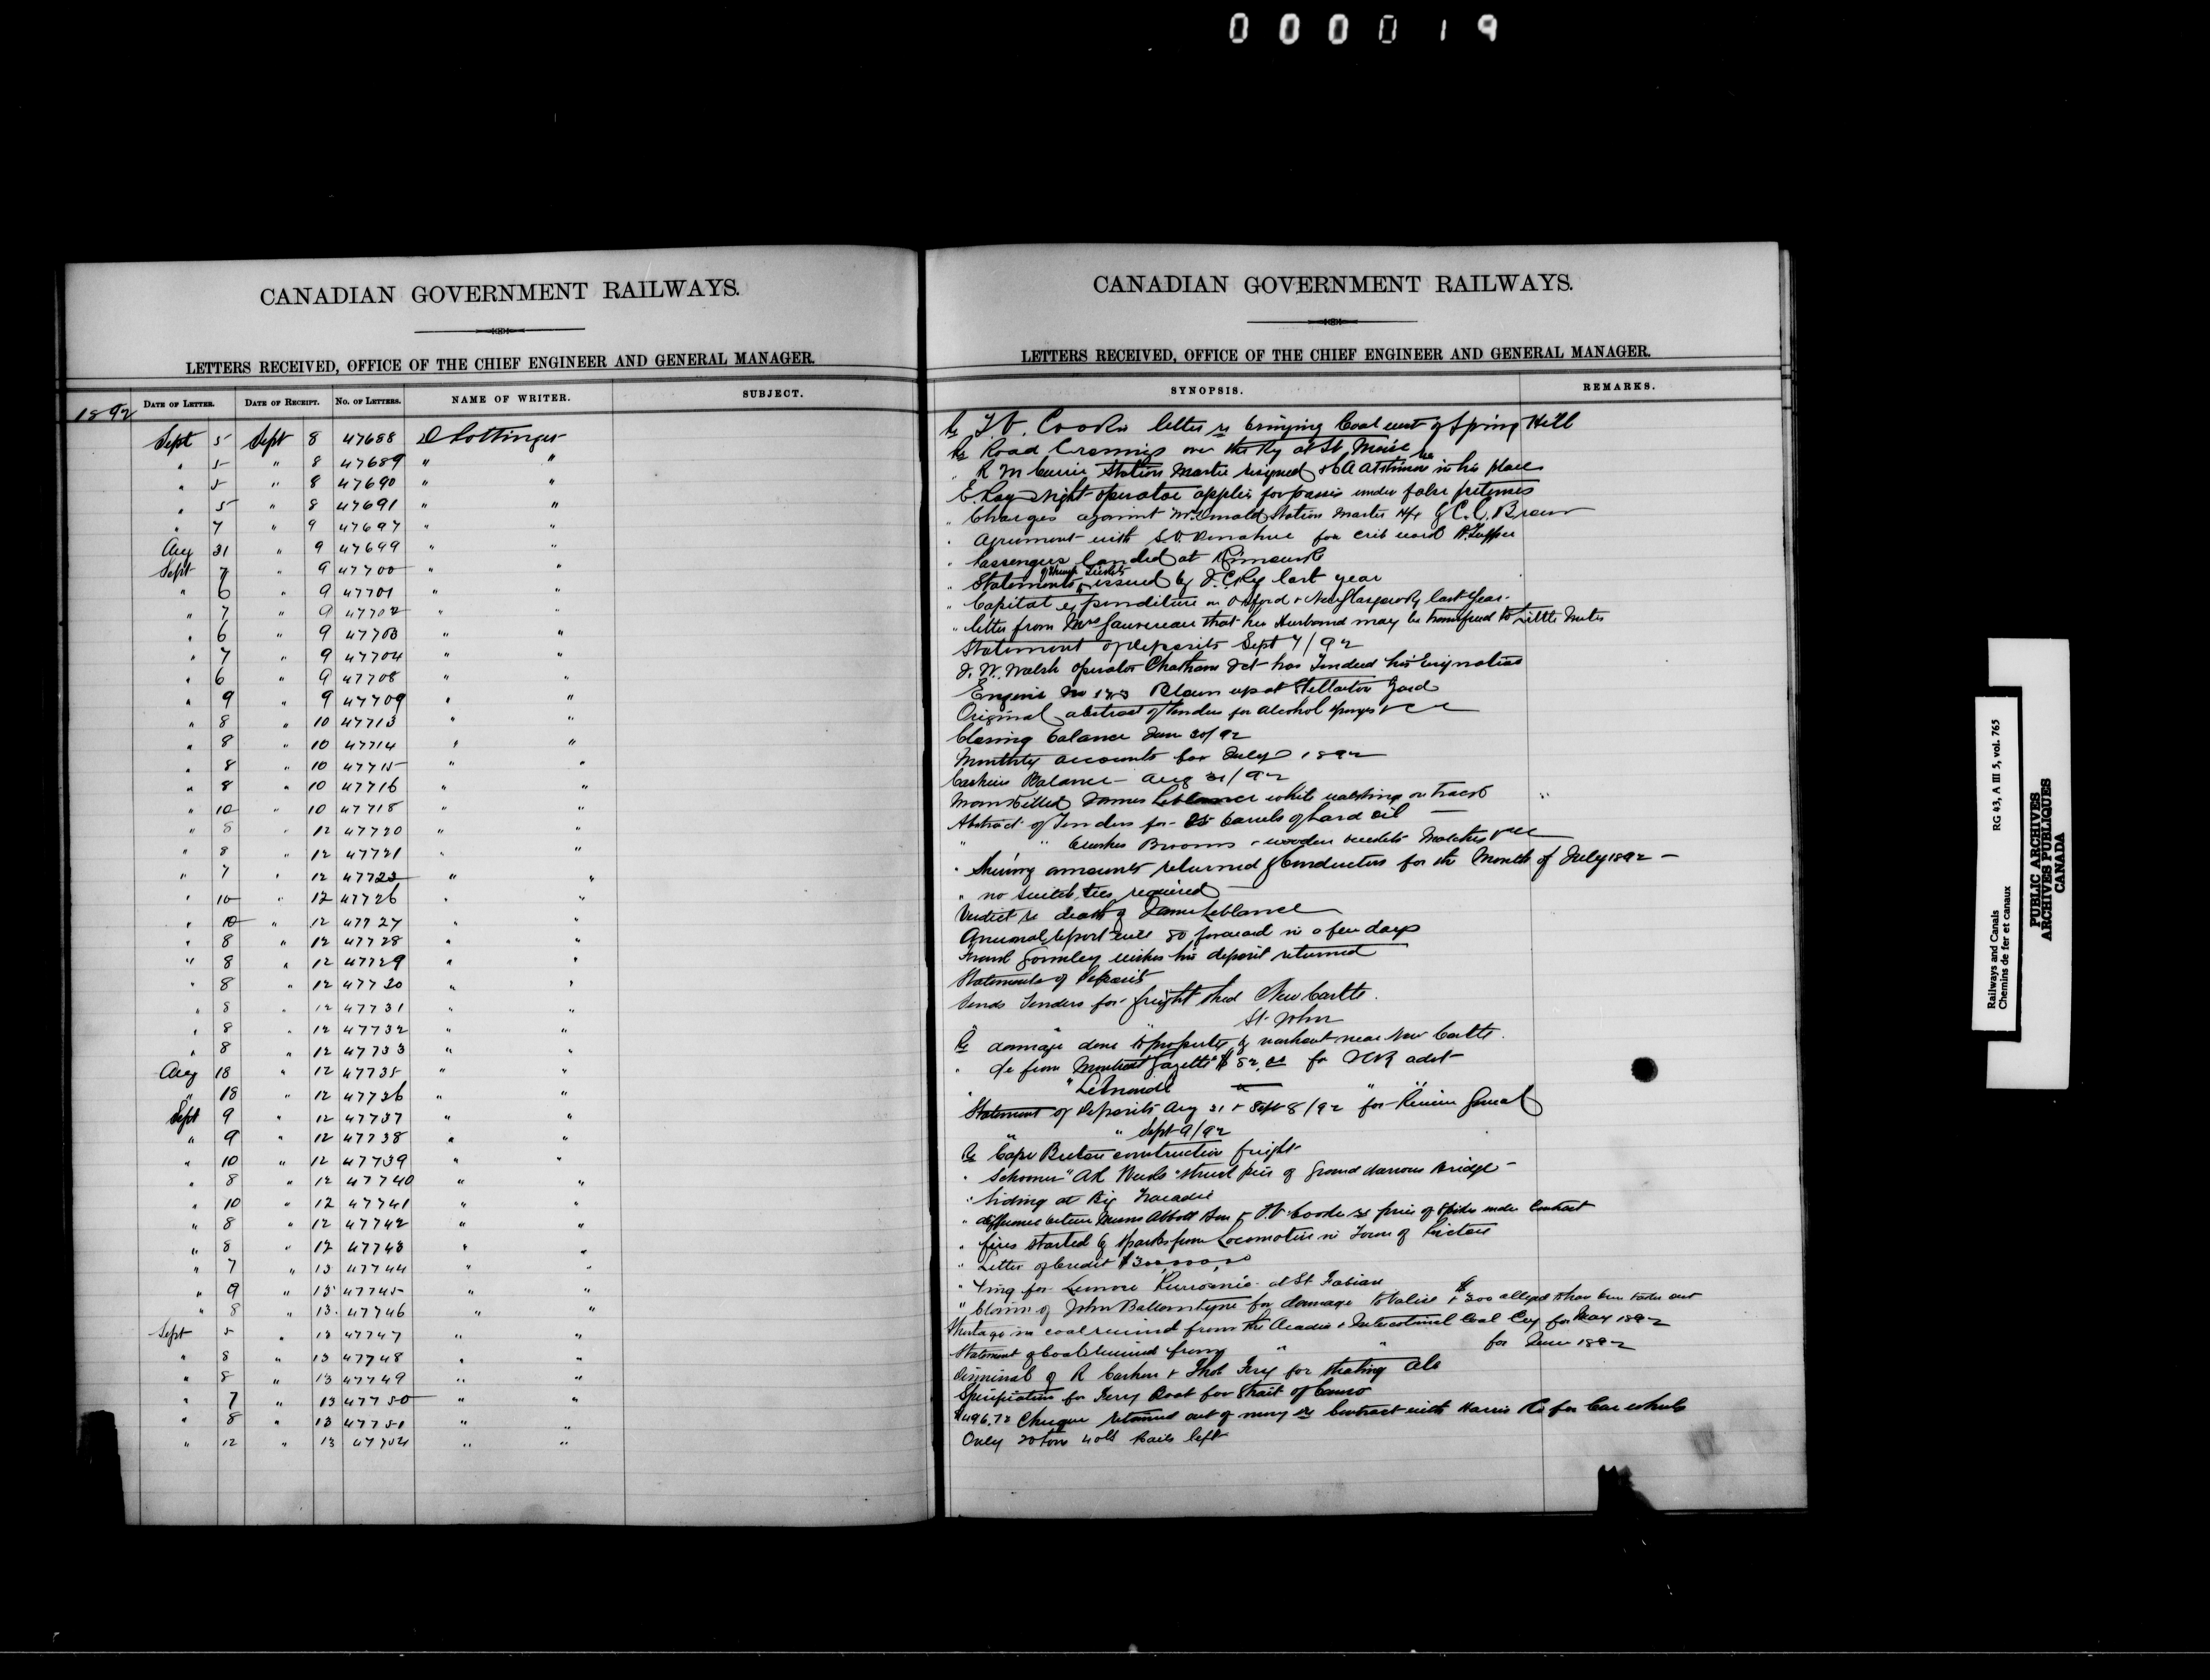 000019
CANADIAN GOVERNMENT RAILWAYS.
LETTERS RECEIVED, OFFICE OF THE CHIEF ENGINEER AND GENERAL MANAGER.
1892 DATE OF LETTER. DATE OF RECEIPT. NO. OF LETTERS. NAME OF WRITER. SUBJECT.
Sept 5 Sept 8 47688 D Pottinger
" 5 " 8 47689 " "
" 5 " 8 47690 " "
" 5 " 8 47691 " "
" 7 " 9 47697 " "
Aug 31 " 9 47699 " "
Sept 7 " 9 47700 " "
" 6 " 9 47701 " "
" 7 " 9 47702 " "
" 6 " 9 47703 " "
" 7 " 9 47704 " "
" 6 " 9 47708 " "
" 9 " 9 47709 " "
" 8 " 10 47713 " "
" 8 " 10 47714 " "
" 8 " 10 47715 " "
" 8 " 10 47716 " "
" 10 " 10 47718 " "
" 8 " 12 47720 " "
" 8 " 12 47721 " "
" 7 " 12 47723 " "
" 10 " 12 47726 " "
" 10 " 12 47727 " "
" 8 " 12 47728 " "
" 8 " 12 47729 " "
" 8 " 12 47730 " "
" 8 " 12 47731 " "
" 8 " 12 47732 " "
" 8 " 12 47733 " "
Aug 18 " 12 47735 " "
" 18 " 12 47736 " "
Sept 9 " 12 47737 " "
" 9 " 12 47738 " "
" 10 " 12 47739 " "
" 8 " 12 47740 " "
" 10 " 12 47741 " "
" 8 " 12 47742 " "
" 8 " 12 47743 " "
" 7 " 13 47744 " "
" 9 " 13 47745 " "
" 8 " 13 47746 " "
Sept 5 " 13 47747 " "
" 8 " 13 47748 " "
" 8 " 13 47749 " "
" 7 " 13 47750 " "
" 8 " 13 47751 " "
" 12 " 13 47754 " "
CANADIAN GOVERNMENT RAILWAYS.
LETTERS RECEIVED, OFFICE OF THE CHIEF ENGINEER AND GENERAL MANAGER.
SYNOPSIS. REMARKS.
Re T.V. Cooke letter re bringing Coal west of Spring Hill
Re Road Crossings over the Ry at St Moise
" R M Currie Station Master resigned in his place
E. Roy Night operator applies for passes under false pretenses
" Charges against McDonald Station Master Hfx by C.C. Brown
" Agreement with S.O. Donahue for crib work Pt. Tupper
" Passengers landed at Rimouski
" Statements of through Tickets issued by I.C.Ry last year
" Capital expenditure on Oxford & New Glasgow Ry last year.
" letter from Mrs Sauvereau that her Husband may be transferred to Little Metis
Statement of deposits Sept 7/92
J. W. Walsh operator Chatham Jct has Tendered his resignation
Engine No Blown up at Stellarton Yard
Original abstract of tenders for Alcohol Sponges &c
Closing balance June 30/92
Monthly accounts for July 1892
Cashiers Balance Aug 31/92
Man killed James Leblance while walking on track
Abstract of Tenders for 25 barrels of Lard oil
" " Brushes Brooms & wooden buckets Matches &c
" Shewing amounts returned by Conductors for the Month of July 1892
" no switch ties required
Verdict re death of James Leblance
Annual report will go forward in a few days
Frank Gormley wishes his deposit returned
Statements of Deposits
Sends Tenders for freight shed New Castle.
" " St. John
Re damage done to property by washout near New Castle.
" a/c from Montreal Gazette $ 52.00 for ICR advt
" " Le Monde " " "
Statement of Deposits Aug 31 & Sept 8/92 for Receiver General
" " Sept 9/92
Re Cape Breton construction freight
" Schooner struck pier of Grand Narrows Bridge
" Siding at Big Tracadie
" difference between Messrs Abbott Son & T.V. Cooke re price of Spikes under Contract
" fires started by sparks from Locomotive in Town of Pictou
" Letter of Credit $300,000.00
" at St Fabian
" Claim of John Ballantyne for damage to Valise & $300 alleged to have been taken out
Shortage in coal received from the Acadia & Intercolonial Coal Coy for May 1892
Statement of Coal received from " " for June 1892
Dismissal of R Carken & Thos Ferry for stealing Ale
Specification for Ferry Boat for Strait of Canso
$496.72 Cheque retained out of money re Contract with Harris Co for Car wheels
Only 20 tons old Rails left
Railways and Canals RG 43, A III 5, vol. 765
Chemins de fer et canaux
PUBLIC ARCHIVES
ARCHIVES PUBLIQUES
CANADA